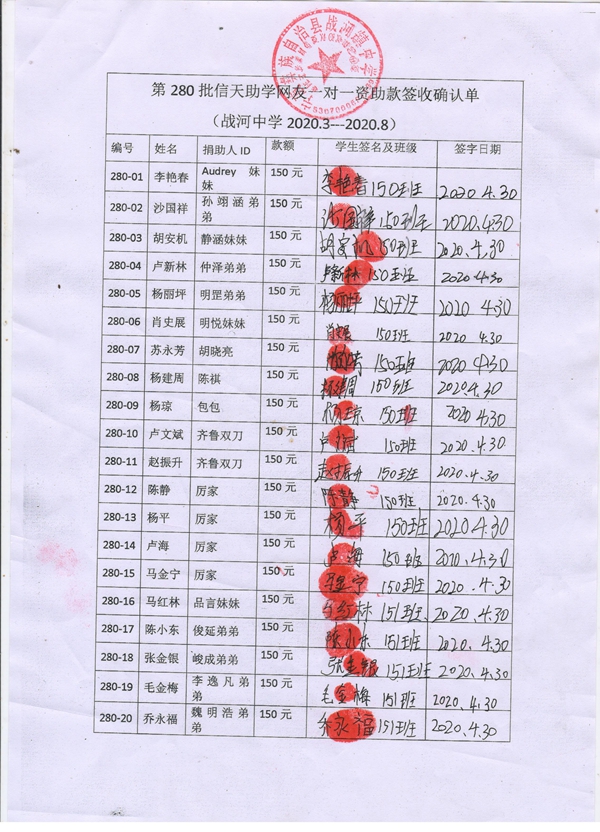 族自治县战河镇中学
第 280 批信天助学网友一对一资助款签收确认单
（战河中学 2020.3---2020.8）
编号 姓名 捐助人 ID 款额 学生签名及班级 签字日期
280-01 李艳春 Audrey 妹妹 150 元 李艳春 150班 2020.4.30
280-02 沙国祥 孙翊涵弟弟 150 元 沙国祥 150班 2020.4.30
280-03 胡安机 静涵妹妹 150 元 胡安机 150班 2020.4.30
280-04 卢新林 仲泽弟弟 150 元 卢新林 150班 2020.4.30
280-05 杨丽坪 明罡弟弟 150 元 杨丽坪 150班 2020.4.30
280-06 肖史展 明悦妹妹 150 元 肖史展 150班 2020.4.30
280-07 苏永芳 胡晓亮 150 元 150班 2020.4.30
280-08 杨建周 陈祺 150 元 杨建周 150班 2020.4.30
280-09 杨琼 包包 150 元 杨琼 150班 2020.4.30
280-10 卢文斌 齐鲁双刀 150 元 卢文斌 150班 2020.4.30
280-11 赵振升 齐鲁双刀 150 元 赵振升 150班 2020.4.30
280-12 陈静 厉家 150 元 陈静 150班 2020.4.30
280-13 杨平 厉家 150 元 杨平 150班 2020.4.30
280-14 卢海 厉家 150 元 卢海 150班 2020.4.30
280-15 马金宁 厉家 150 元 马金宁 150班 2020.4.30
280-16 马红林 品言妹妹 150 元 马红林 151班 2020.4.30
280-17 陈小东 俊延弟弟 150 元 陈小东 151班 2020.4.30
280-18 张金银 峻成弟弟 150 元 张金银 151班 2020.4.30
280-19 毛金梅 李逸凡弟弟 150 元 毛金梅 151班 2020.4.30
280-20 乔永福 魏明浩弟弟 150 元 乔永福 151班 2020.4.30